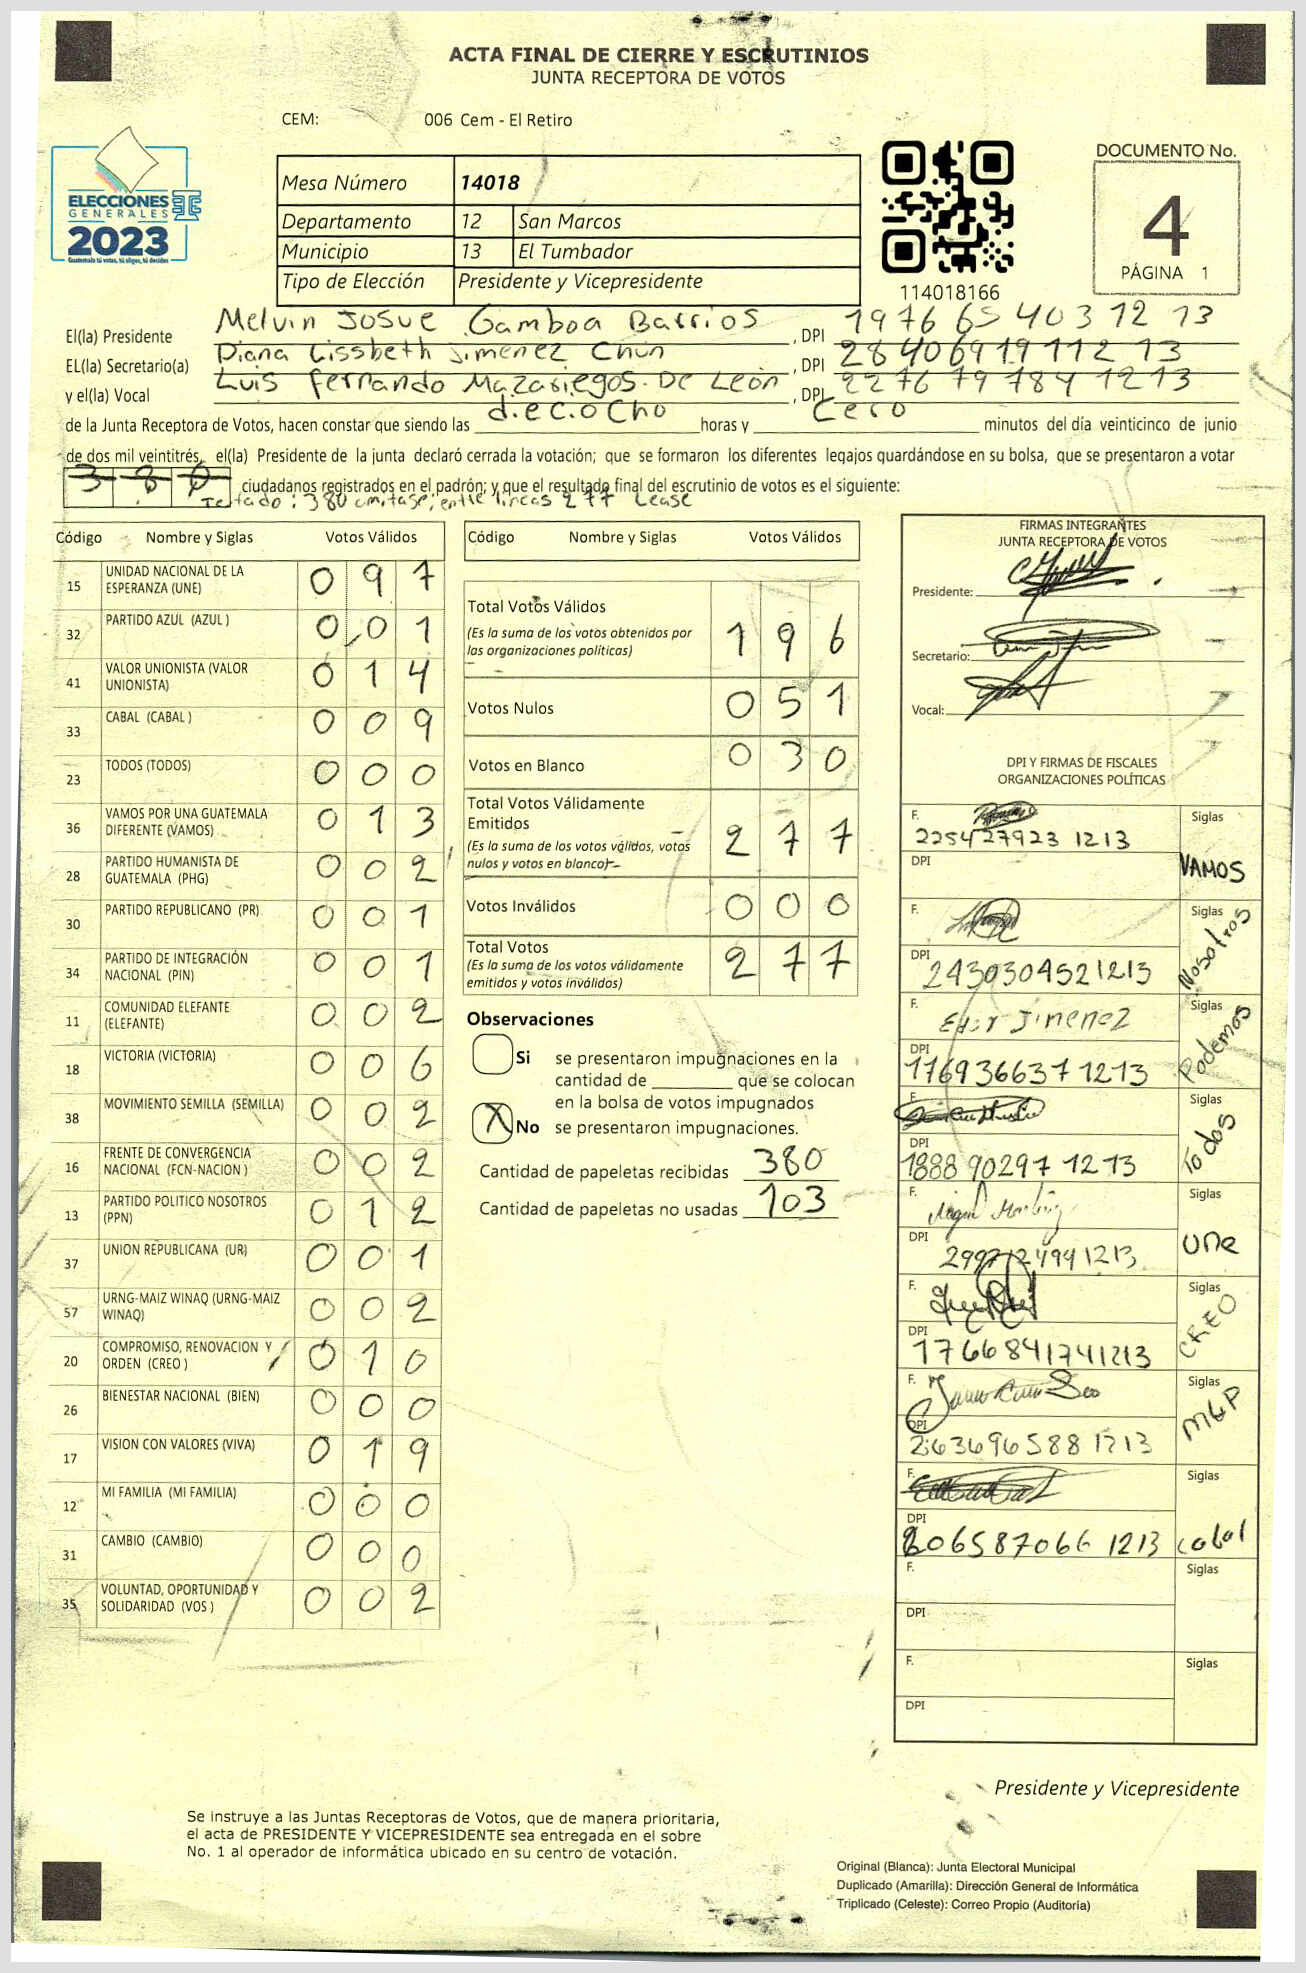 ACTA FINAL DE CIERRE Y ESCRUTINIOS
JUNTA RECEPTORA DE VOTOS
CEM: 006 Cem - El Retiro
ELECCIONES
GENERALES
2023
Guatemala tú votas, tú eliges, tú decides
Mesa Número 14018
Departamento 12 San Marcos
Municipio 13 El Tumbador
Tipo de Elección Presidente y Vicepresidente
114018166
DOCUMENTO No.
4
PÁGINA 1
El(la) Presidente Melvin Josue Gamboa Barrios, DPI 1976 65 403 12 13
EL(la) Secretario(a) Diana Lissbeth Jimenez Chun, DPI 28406919112 13
y el(la) Vocal Luis Fernando Mazariegos De León, DPI 2276 79 784 1213
de la Junta Receptora de Votos, hacen constar que siendo las dieciocho horas y cero minutos del día veinticinco de junio
de dos mil veintitrés, el(la) Presidente de la junta declaró cerrada la votación; que se formaron los diferentes legajos guardándose en su bolsa, que se presentaron a votar
3 8 0 ciudadanos registrados en el padrón; y que el resultado final del escrutinio de votos es el siguiente:
Testado: 380 omitase; entre lineas 277 Lease
Código Nombre y Siglas Votos Válidos
15 UNIDAD NACIONAL DE LA ESPERANZA (UNE) 0 9 7
32 PARTIDO AZUL (AZUL ) 0 0 1
41 VALOR UNIONISTA (VALOR UNIONISTA) 0 1 4
33 CABAL (CABAL ) 0 0 9
23 TODOS (TODOS) 0 0 0
36 VAMOS POR UNA GUATEMALA DIFERENTE (VAMOS) 0 1 3
28 PARTIDO HUMANISTA DE GUATEMALA (PHG) 0 0 2
30 PARTIDO REPUBLICANO (PR) 0 0 1
34 PARTIDO DE INTEGRACIÓN NACIONAL (PIN) 0 0 1
11 COMUNIDAD ELEFANTE (ELEFANTE) 0 0 2
18 VICTORIA (VICTORIA) 0 0 6
38 MOVIMIENTO SEMILLA (SEMILLA) 0 0 2
16 FRENTE DE CONVERGENCIA NACIONAL (FCN-NACION ) 0 0 2
13 PARTIDO POLITICO NOSOTROS (PPN) 0 1 2
37 UNION REPUBLICANA (UR) 0 0 1
57 URNG-MAIZ WINAQ (URNG-MAIZ WINAQ) 0 0 2
20 COMPROMISO, RENOVACION Y ORDEN (CREO ) 0 1 0
26 BIENESTAR NACIONAL (BIEN) 0 0 0
17 VISION CON VALORES (VIVA) 0 1 9
12 MI FAMILIA (MI FAMILIA) 0 0 0
31 CAMBIO (CAMBIO) 0 0 0
35 VOLUNTAD, OPORTUNIDAD Y SOLIDARIDAD (VOS ) 0 0 2
Código Nombre y Siglas Votos Válidos
Total Votos Válidos 1 9 6
(Es la suma de los votos obtenidos por
las organizaciones políticas)
Votos Nulos 0 5 1
Votos en Blanco 0 3 0
Total Votos Válidamente
Emitidos 2 7 7
(Es la suma de los votos válidos, votos
nulos y votos en blanco)
Votos Inválidos 0 0 0
Total Votos 2 7 7
(Es la suma de los votos válidamente
emitidos y votos inválidos)
Observaciones
Si se presentaron impugnaciones en la
cantidad de ________ que se colocan
en la bolsa de votos impugnados
X No se presentaron impugnaciones.
Cantidad de papeletas recibidas 380
Cantidad de papeletas no usadas 103
FIRMAS INTEGRANTES
JUNTA RECEPTORA DE VOTOS
Presidente:
Secretario:
Vocal:
DPI Y FIRMAS DE FISCALES
ORGANIZACIONES POLÍTICAS
F. Siglas
225427923 1213
DPI VAMOS
F. Siglas Nosotros
DPI 2430304521213
F. Jimenez Siglas Podemos
DPI 1769366371213
F. Siglas Todos
DPI 1888 90297 1213
F. Siglas UNe
DPI 2997124941213
F. Siglas CREO
DPI 1766841741213
F. Siglas MLP
DPI 263696588 1213
F. Siglas cabal
DPI 206587066 1213
F. Siglas
DPI
F. Siglas
DPI
Presidente y Vicepresidente
Se instruye a las Juntas Receptoras de Votos, que de manera prioritaria,
el acta de PRESIDENTE Y VICEPRESIDENTE sea entregada en el sobre
No. 1 al operador de informática ubicado en su centro de votación.
Original (Blanca): Junta Electoral Municipal
Duplicado (Amarilla): Dirección General de Informática
Triplicado (Celeste): Correo Propio (Auditoría)